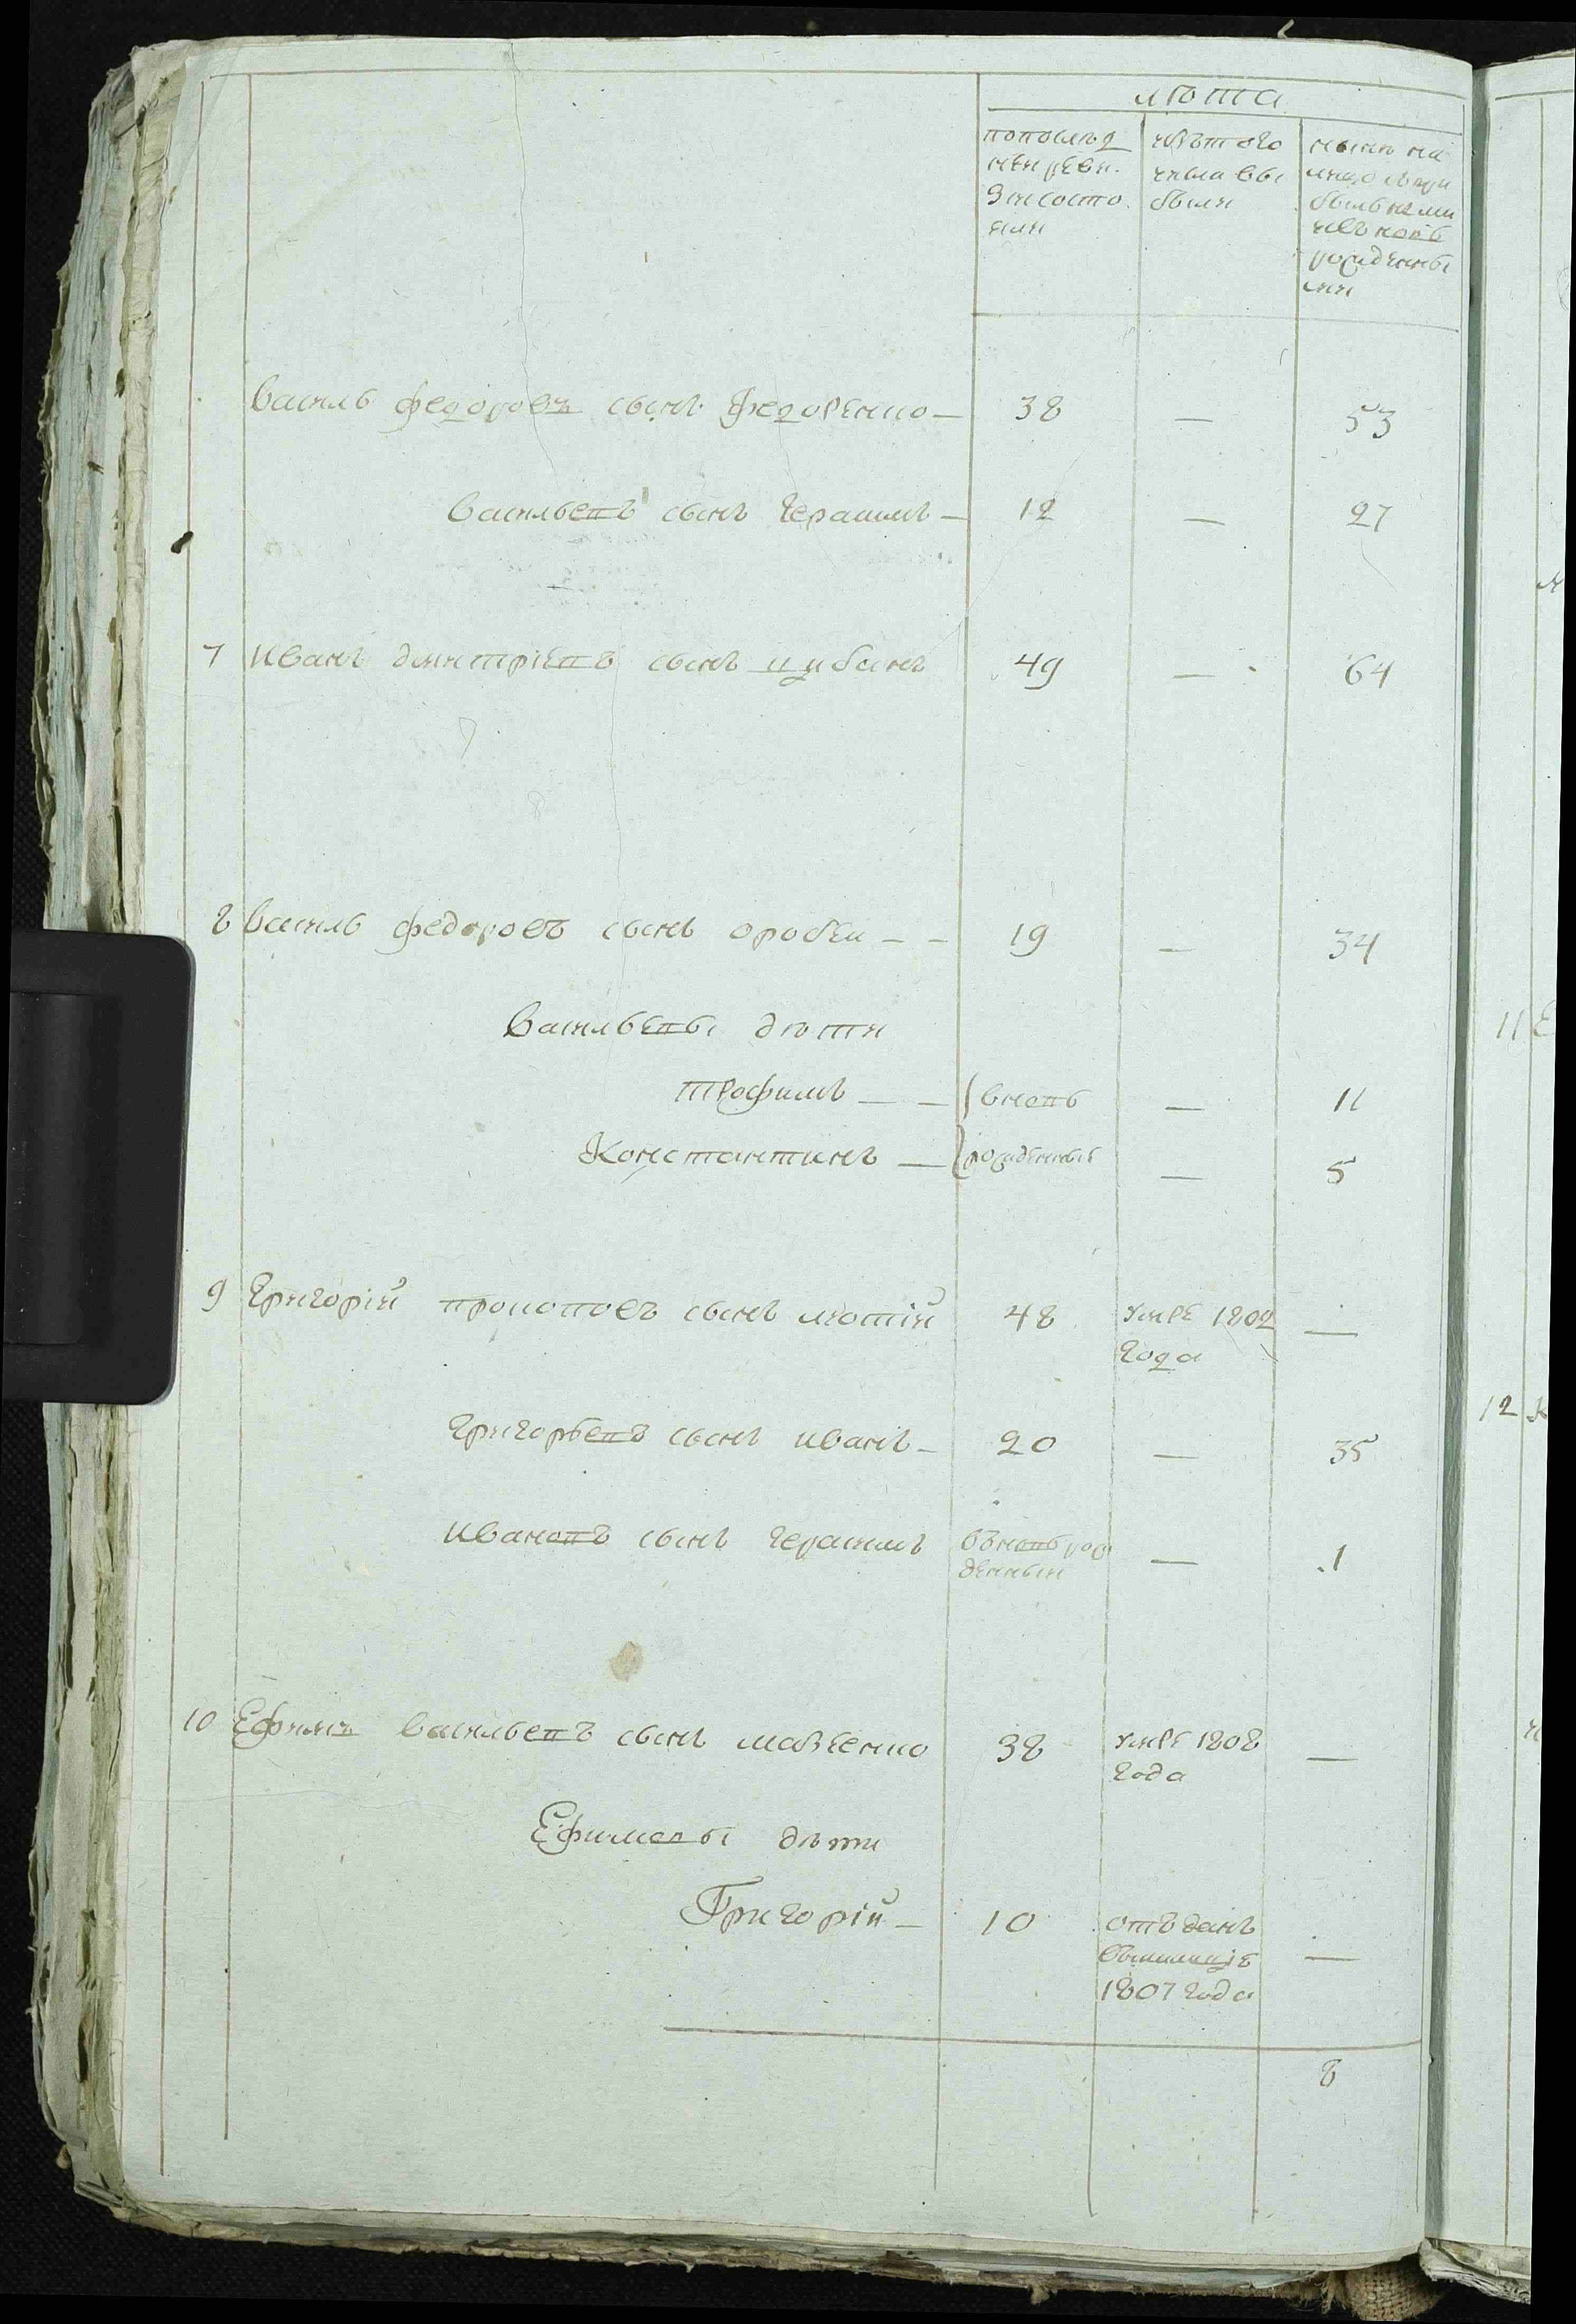 лѣта
попослѣд
ней реви
зии состо
яли
изътого
числа вы
были
нынѣ на
лицо съ при
былыми
и въновь
рожденны
ми
Василь федоровъ сынъ федоренко — 38 — 53
Васильевъ сынъ Герасимъ — 12 — 27
7 Иванъ дмитріевъ сынъ цибань 49 — 64
8 Василь федоровъ сынъ оробеи — — 19 — 34
Васильевы дѣти
трофимъ — — вновь — 11
Константинъ — рожденные — 5
9 Григорій прокоповъ сынъ лютій 48 умре 1802 —
года
Григорьевъ сынъ иванъ — 20 — 35
Ивановъ сынъ герасимъ въновь рож — 1
денный
10 Ефимъ васильевъ сынъ мовченко 38 умре 1808 —
года
Ефимовы дѣти
Григорій — 10 отъданъ —
1807 года
8
11 Е
12 К